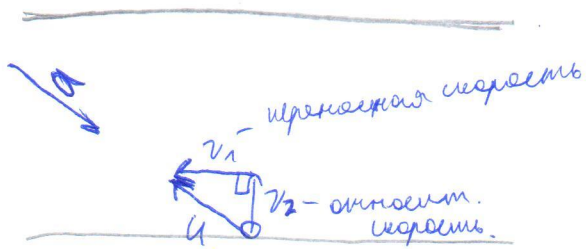 a
v₁ - переносная скорость
v₂ - относит.
скорость.
u